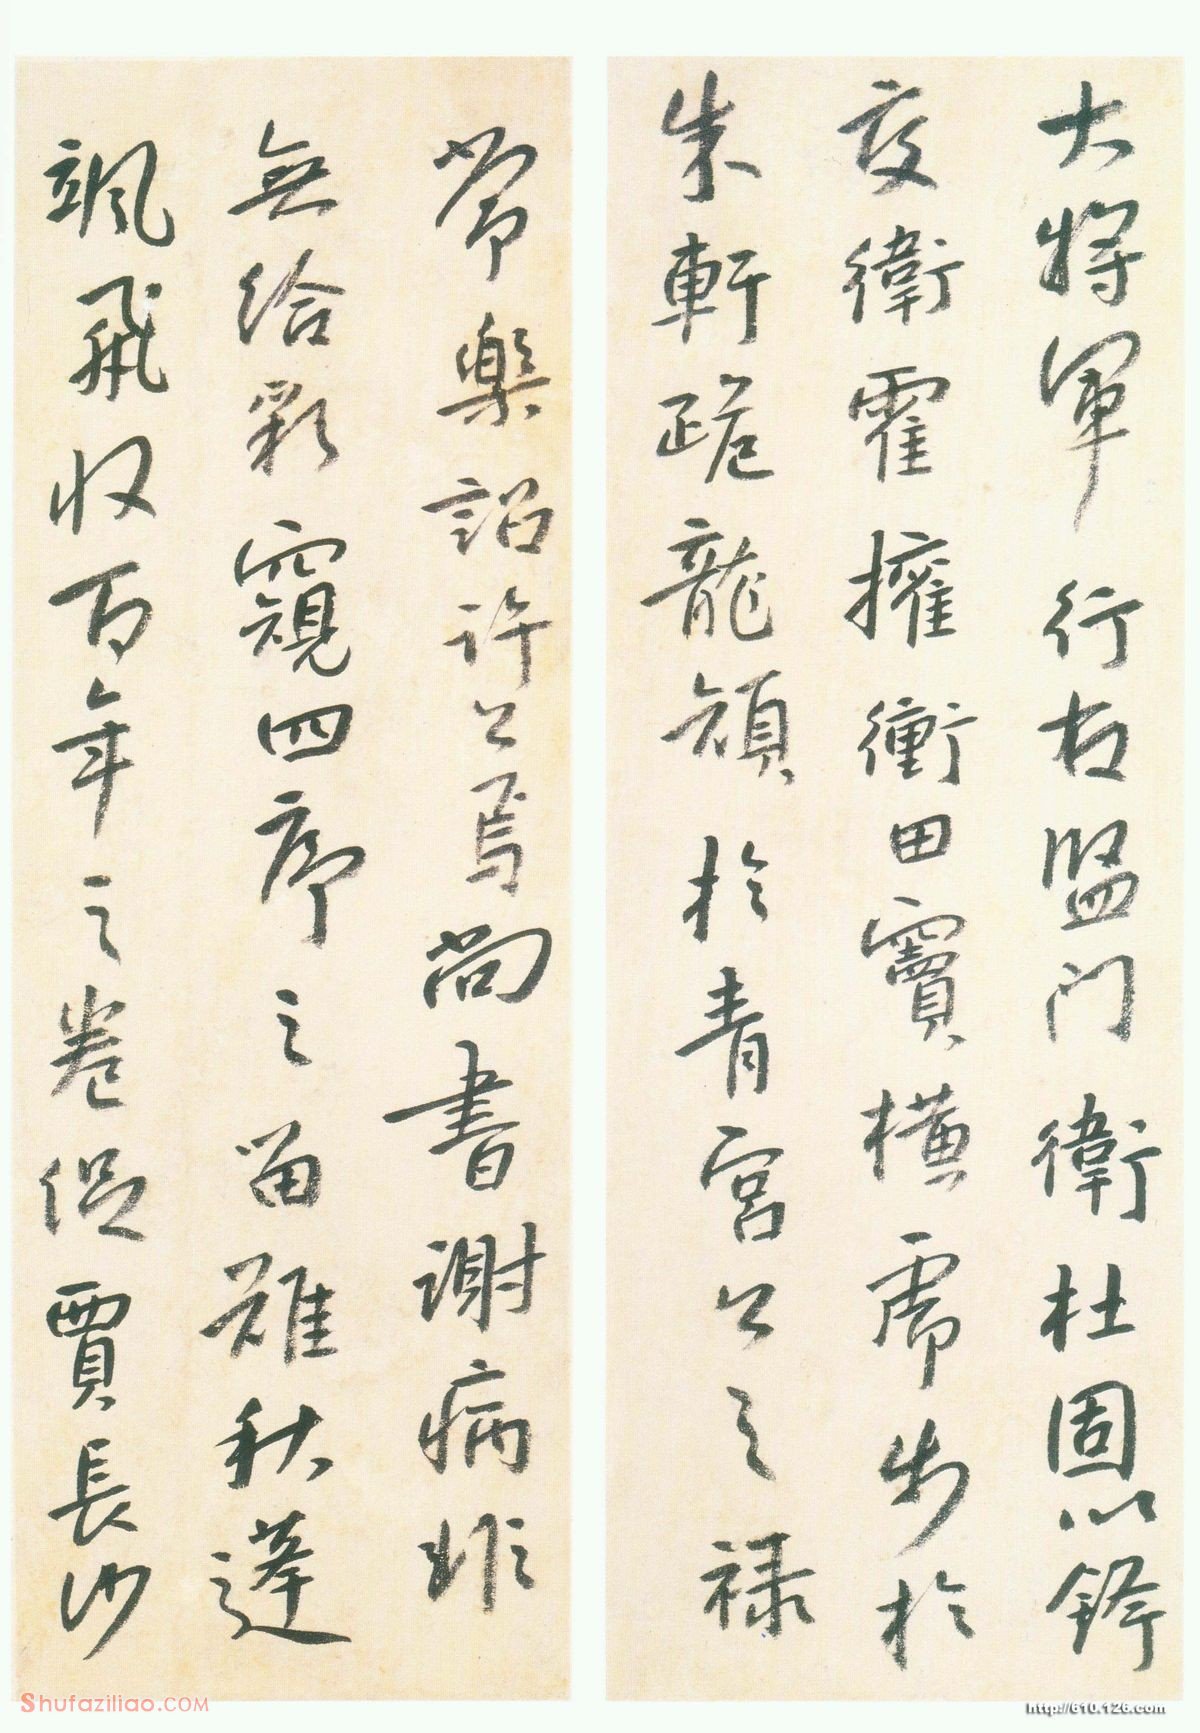 大将軍行右監门衛杜固以鋒
交衛霍擁衝田竇横虎步於
朱軒跪龍顔於青宮公之禄
常樂詔許公焉尚書謝病非
無給彩窺四序之留難秋蓬
颯飛收百年之卷促賈長沙
Shufaziliao.COM
http://610.126.com